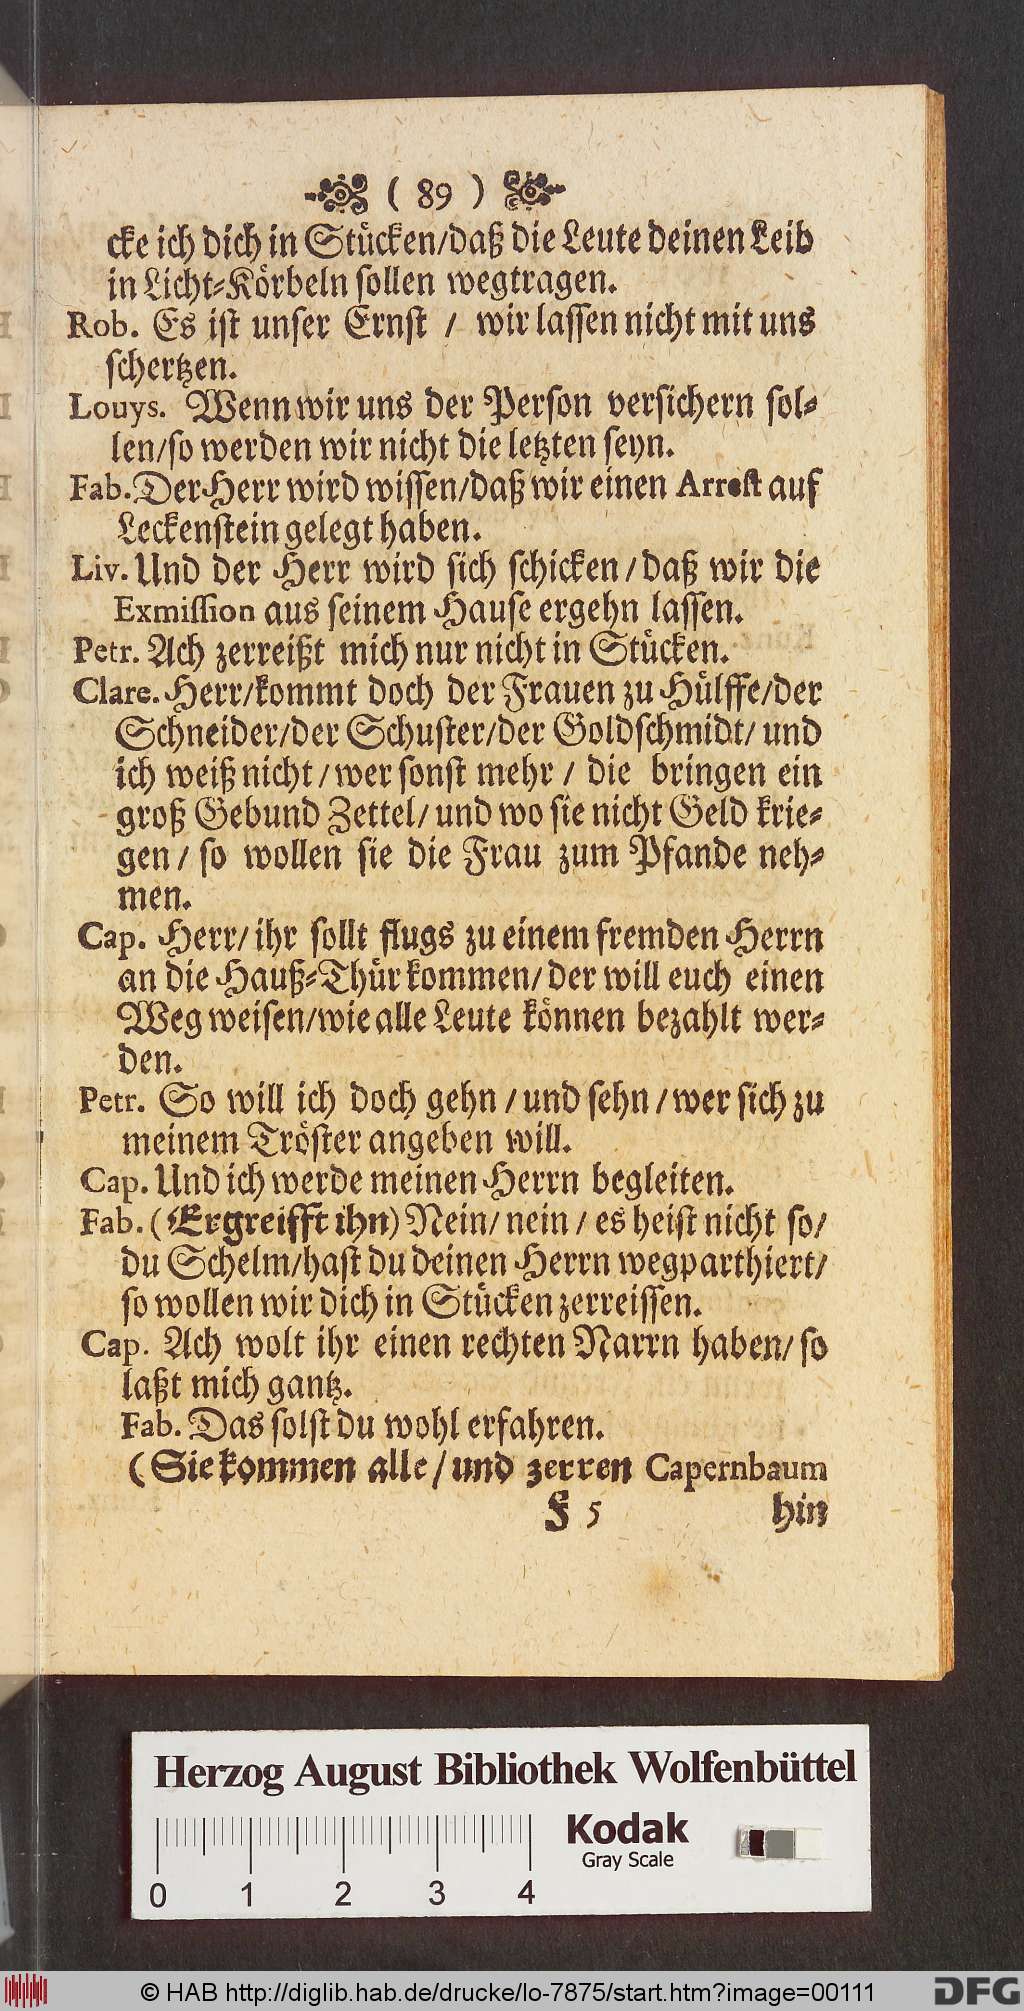 ( 89 )
cke ich dich in Stücken/daß die Leute deinen Leib
in Licht-Körbeln sollen wegtragen.
Rob. Es ist unser Ernst / wir lassen nicht mit uns
schertzen.
Louys. Wenn wir uns der Person versichern sol-
len/so werden wir nicht die letzten seyn.
Fab. Der Herr wird wissen/daß wir einen Arrest auf
Leckenstein gelegt haben.
Liv. Und der Herr wird sich schicken/daß wir die
Exmission aus seinem Hause ergehn lassen.
Petr. Ach zerreißt mich nur nicht in Stücken.
Clare. Herr/kommt doch der Frauen zu Hülffe/der
Schneider/der Schuster/der Goldschmidt/ und
ich weiß nicht/wer sonst mehr / die bringen ein
groß Gebund Zettel/ und wo sie nicht Geld krie-
gen / so wollen sie die Frau zum Pfande neh-
men.
Cap. Herr/ ihr sollt flugs zu einem fremden Herrn
an die Hauß-Thür kommen/ der will euch einen
Weg weisen/wie alle Leute können bezahlt wer-
den.
Petr. So will ich doch gehn / und sehn / wer sich zu
meinem Tröster angeben will.
Cap. Und ich werde meinen Herrn begleiten.
Fab. (Ergreifft ihn) Nein/ nein / es heist nicht so/
du Schelm/hast du deinen Herrn wegparthiert/
so wollen wir dich in Stücken zerreissen.
Cap. Ach wolt ihr einen rechten Narrn haben/ so
laßt mich gantz.
Fab. Das solst du wohl erfahren.
(Sie kommen alle/ und zerren Capernbaum
F 5 hin
Herzog August Bibliothek Wolfenbüttel
Kodak
Gray Scale
0 1 2 3 4
© HAB http://diglib.hab.de/drucke/lo-7875/start.htm?image=00111
DFG